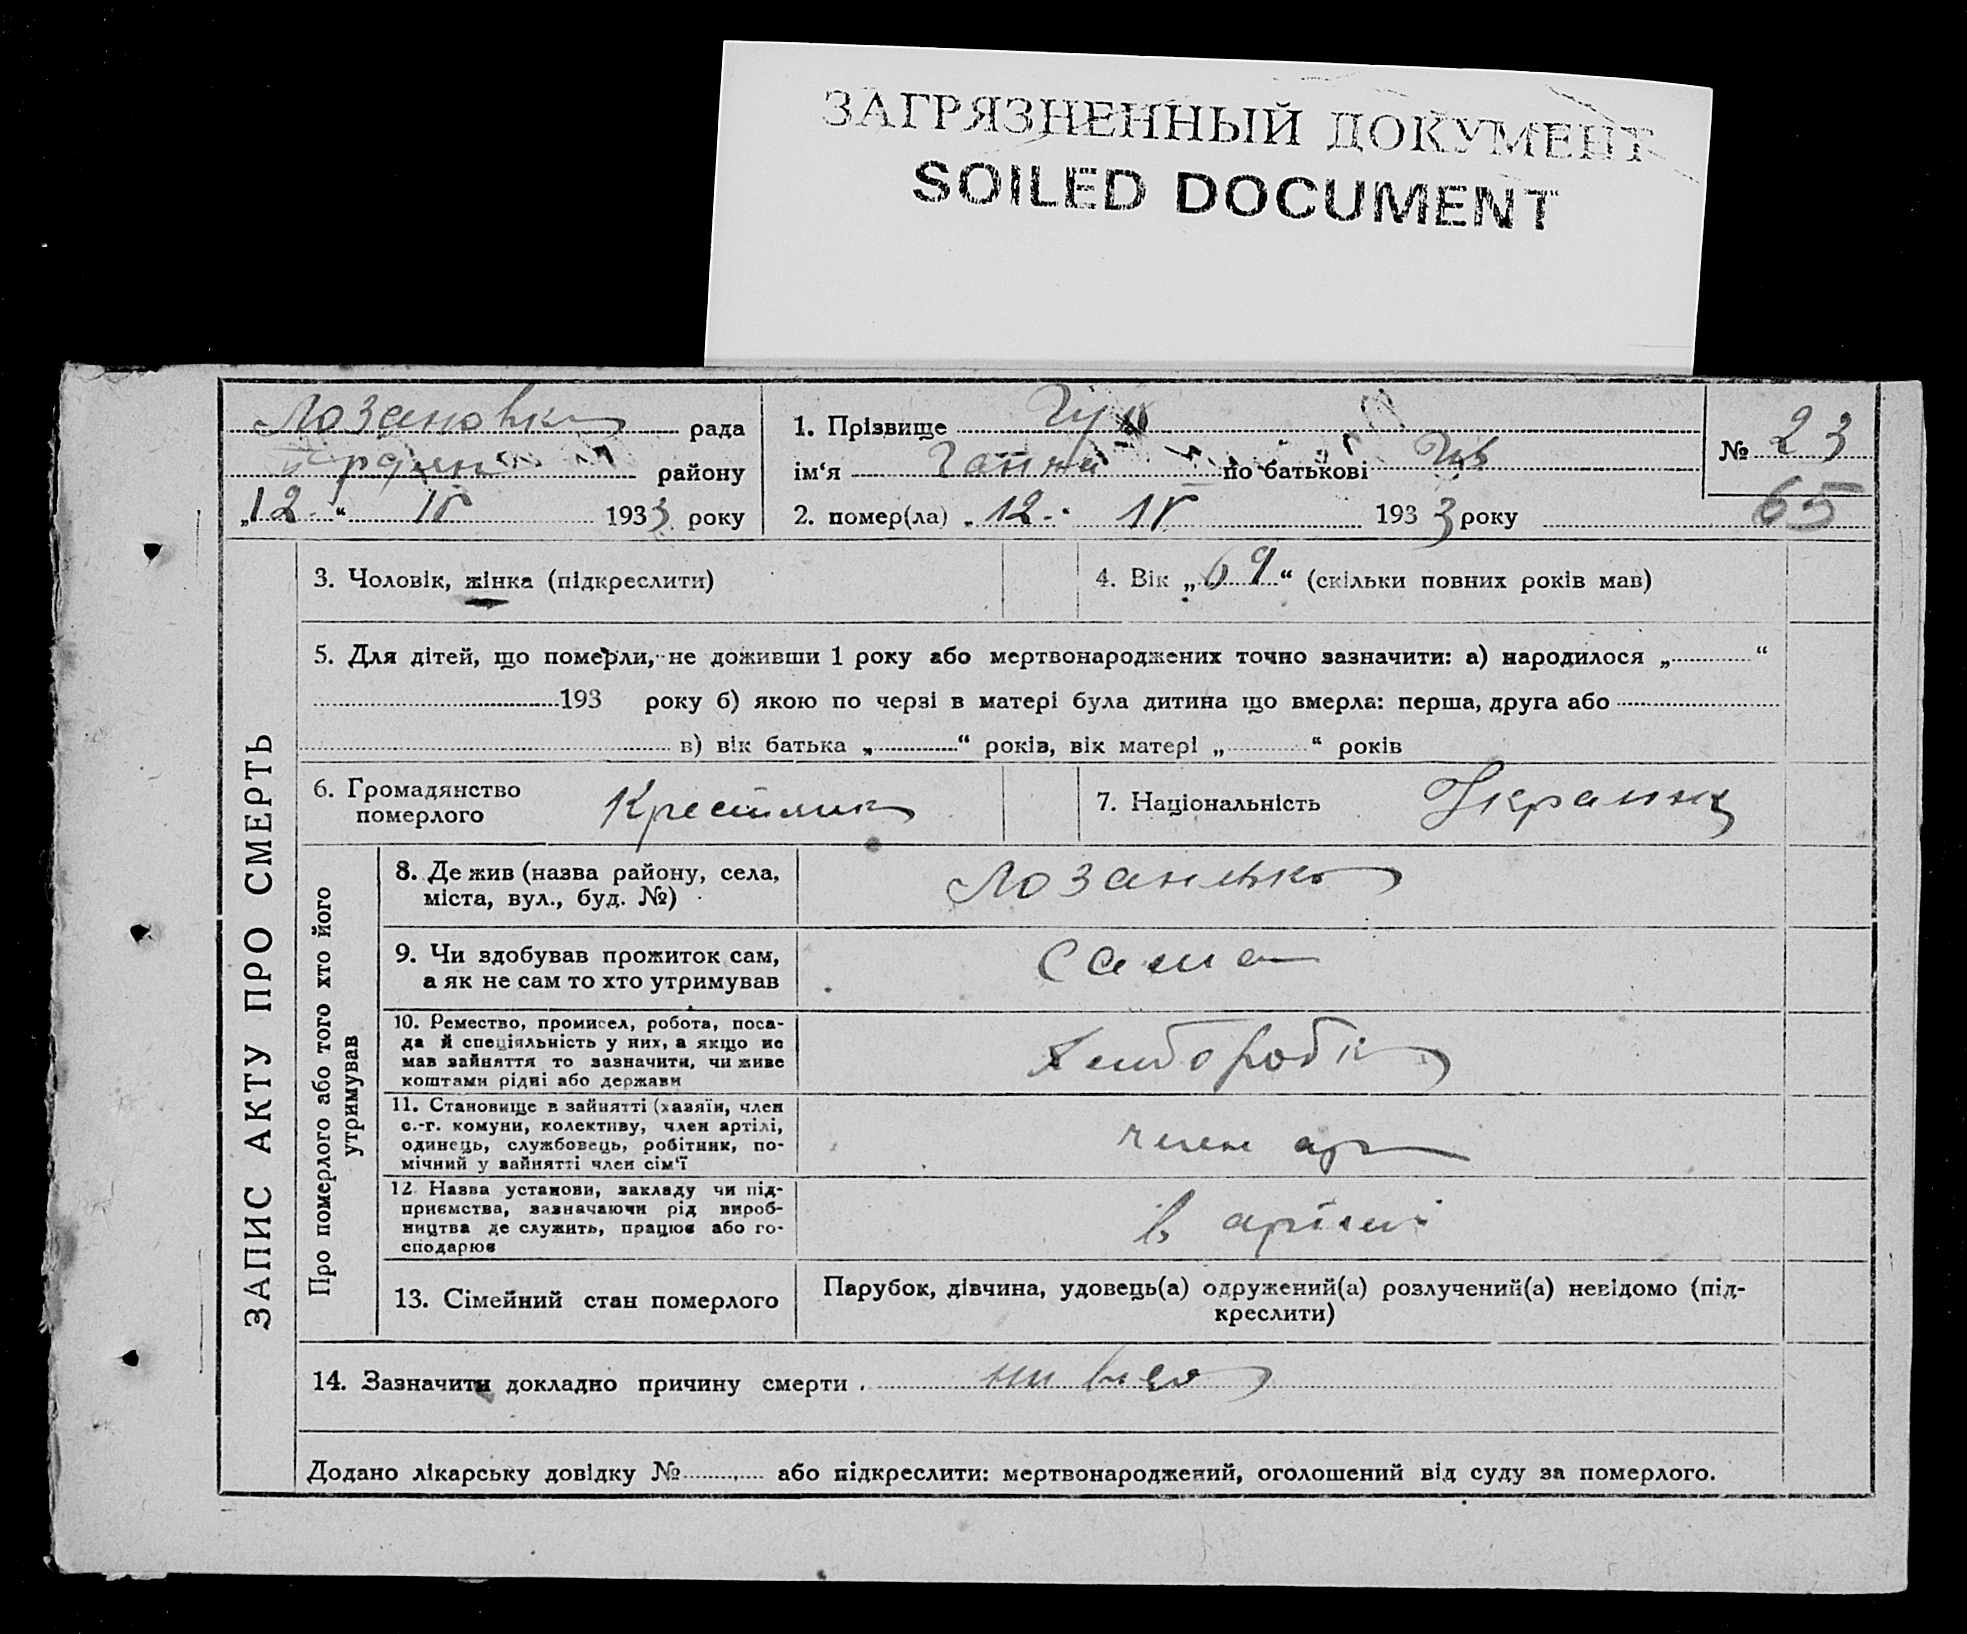 ЗАГРЯЗНЕННЫЙ ДОКУМЕНТ
SOILED DOCUMENT
Лозановка рада
району
„12.“ IV 1933 року
1. Прізвище
ім‘я Ганна по батькові
2. помер(ла) „12. IV 1933 року
№ 23
65
ЗАПИС АКТУ ПРО СМЕРТЬ
3. Чоловік, жінка (підкреслити)
4. Вік „69“ (скільки повних років мав)
5. Для дітей, що померли, не доживши 1 року або мертвонароджених точно зазначити: а) народилося „ “
193 року б) якою по черзі в матері була дитина що вмерла: перша, друга або
в) вік батька „ “ років, вік матері „ “ років
6. Громадянство
померлого
7. Національність
Про померлого або того хто його
утримував
8. Де жив (назва району, села,
міста, вул., буд. №)
9. Чи здобував прожиток сам,
а як не сам то хто утримував
сама
10. Ремество, промисел, робота, поса-
да й спеціяльність у них, а якщо не
мав зайняття то зазначити, чи живе
коштами рідні або держави
11. Становище в зайнятті (хазяїн, член
с.-г. комуни, колективу, член артілі,
одинець, службовець, робітник, по-
мічний у зайнятті член сім‘ї
член
12. Назва установи, закладу чи під-
приємства, зазначаючи рід вироб-
ництва де служить, працює або го-
сподарює
в артілі
13. Сімейний стан померлого
Парубок, дівчина, удовець(а) одружений(а) розлучений(а) невідомо (під-
креслити)
14. Зазначити докладно причину смерти
Додано лікарську довідку № або підкреслити: мертвонароджений, оголошений від суду за померлого.